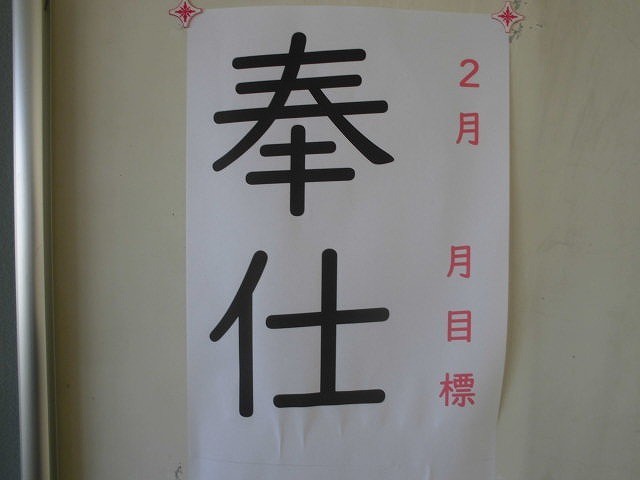 2月　月目標
奉仕